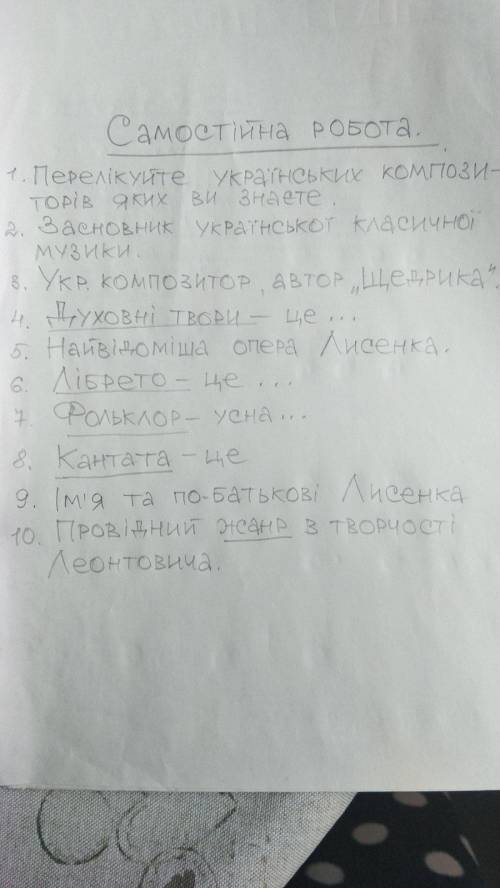 Самостійна робота.
1. Перелікуйте українських компози-
торів яких ви знаєте.
2. Засновник української класичної
музики.
3. Укр. композитор, автор „Щедрика".
4. Духовні твори – це ...
5. Найвідоміша опера Лисенка.
6. Лібрето – це ...
7. Фольклор – усна...
8. Кантата – це
9. Ім'я та по-батькові Лисенка
10. Провідний жанр в творчості
Леонтовича.